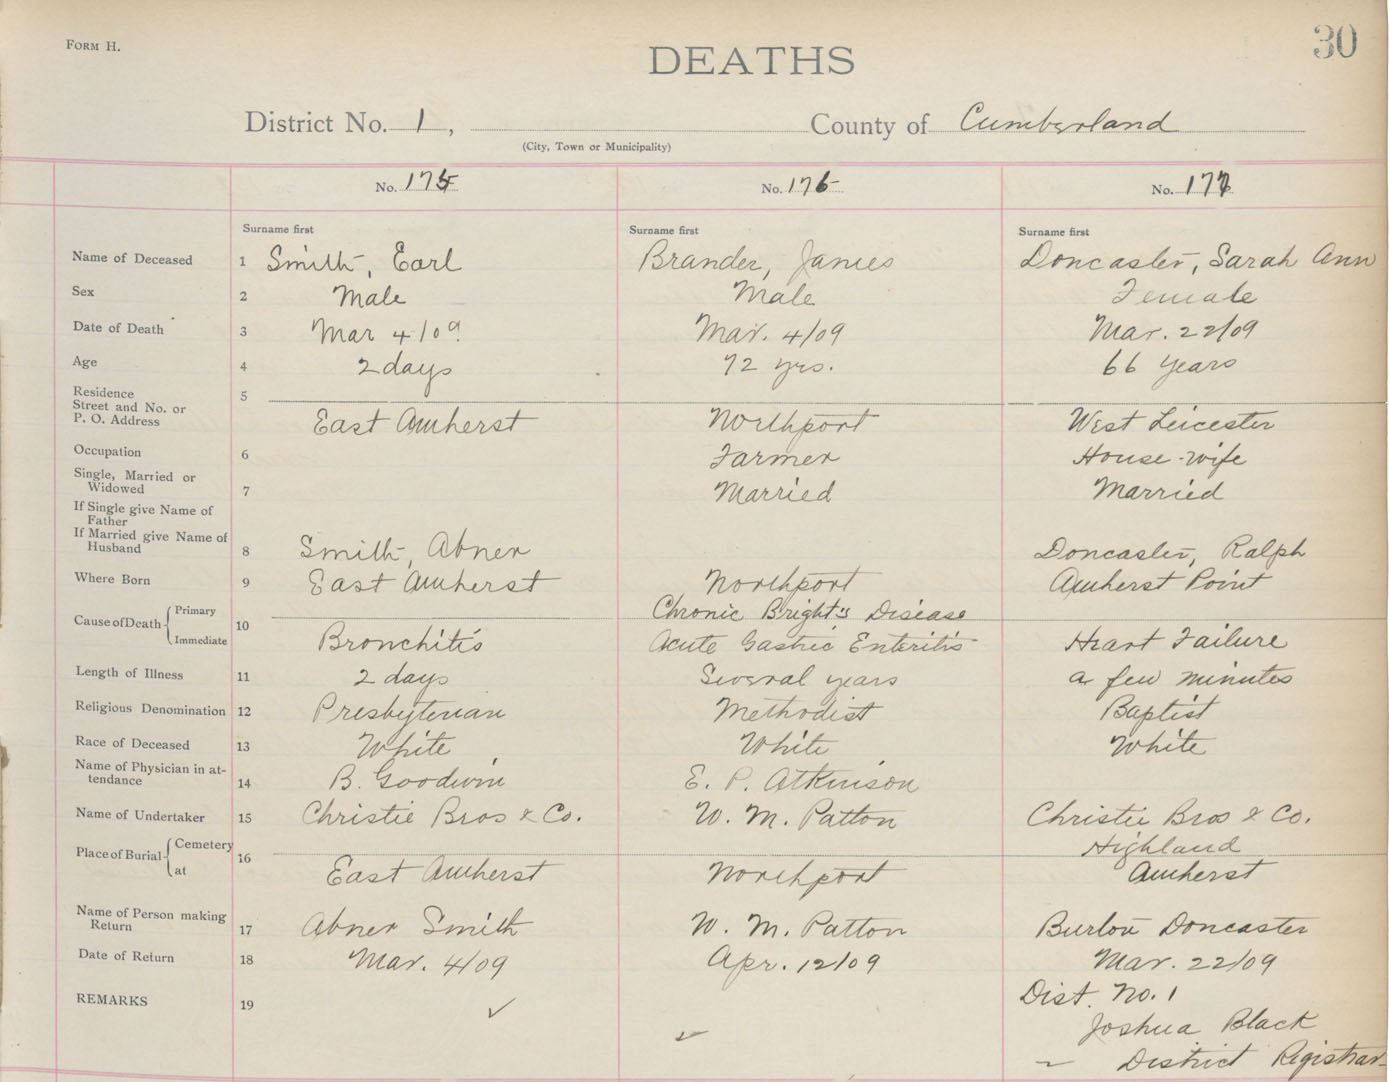 Form H.
30
DEATHS
District No. 1, County of Cumberland
(City, Town or Municipality)
No. 175 No. 176 No. 177
Surname first Surname first Surname first
Name of Deceased 1 Smith, Earl Brander, James Doncaster, Sarah Ann
Sex 2 Male Male Female
Date of Death 3 Mar 4/09 Mar. 4/09 Mar. 22/09
Age 4 2 days 72 yrs. 66 years
Residence 5
Street and No. or
P. O. Address East Amherst Northport West Leicester
Occupation 6 Farmer House-wife
Single, Married or
Widowed 7 Married Married
If Single give Name of
Father
If Married give Name of
Husband 8 Smith, Abner Doncaster, Ralph
Where Born 9 East Amherst Northport Amherst Point
Cause of Death Primary 10 Chronic Bright's Disease
Immediate Bronchitis Acute Gastric Enteritis Heart Failure
Length of Illness 11 2 days Several years a few minutes
Religious Denomination 12 Presbyterian Methodist Baptist
Race of Deceased 13 White White White
Name of Physician in at-
tendance 14 B. Goodwin E. P. Atkinson
Name of Undertaker 15 Christie Bros & Co. W. M. Patton Christie Bros & Co.
Place of Burial Cemetery 16 Highland
at East Amherst Northport Amherst
Name of Person making
Return 17 Abner Smith W. M. Patton Burton Doncaster
Date of Return 18 Mar. 4/09 Apr. 12/09 Mar. 22/09
REMARKS 19 ✓ ✓ Dist. No. 1
Joshua Black
District Registrar